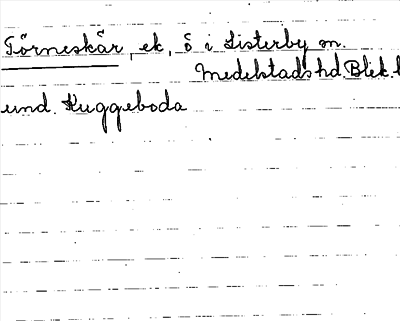 Törneskär, ek, ö i Listerby sn.
Medelstads hd. Blek. l
und. Kuggeboda